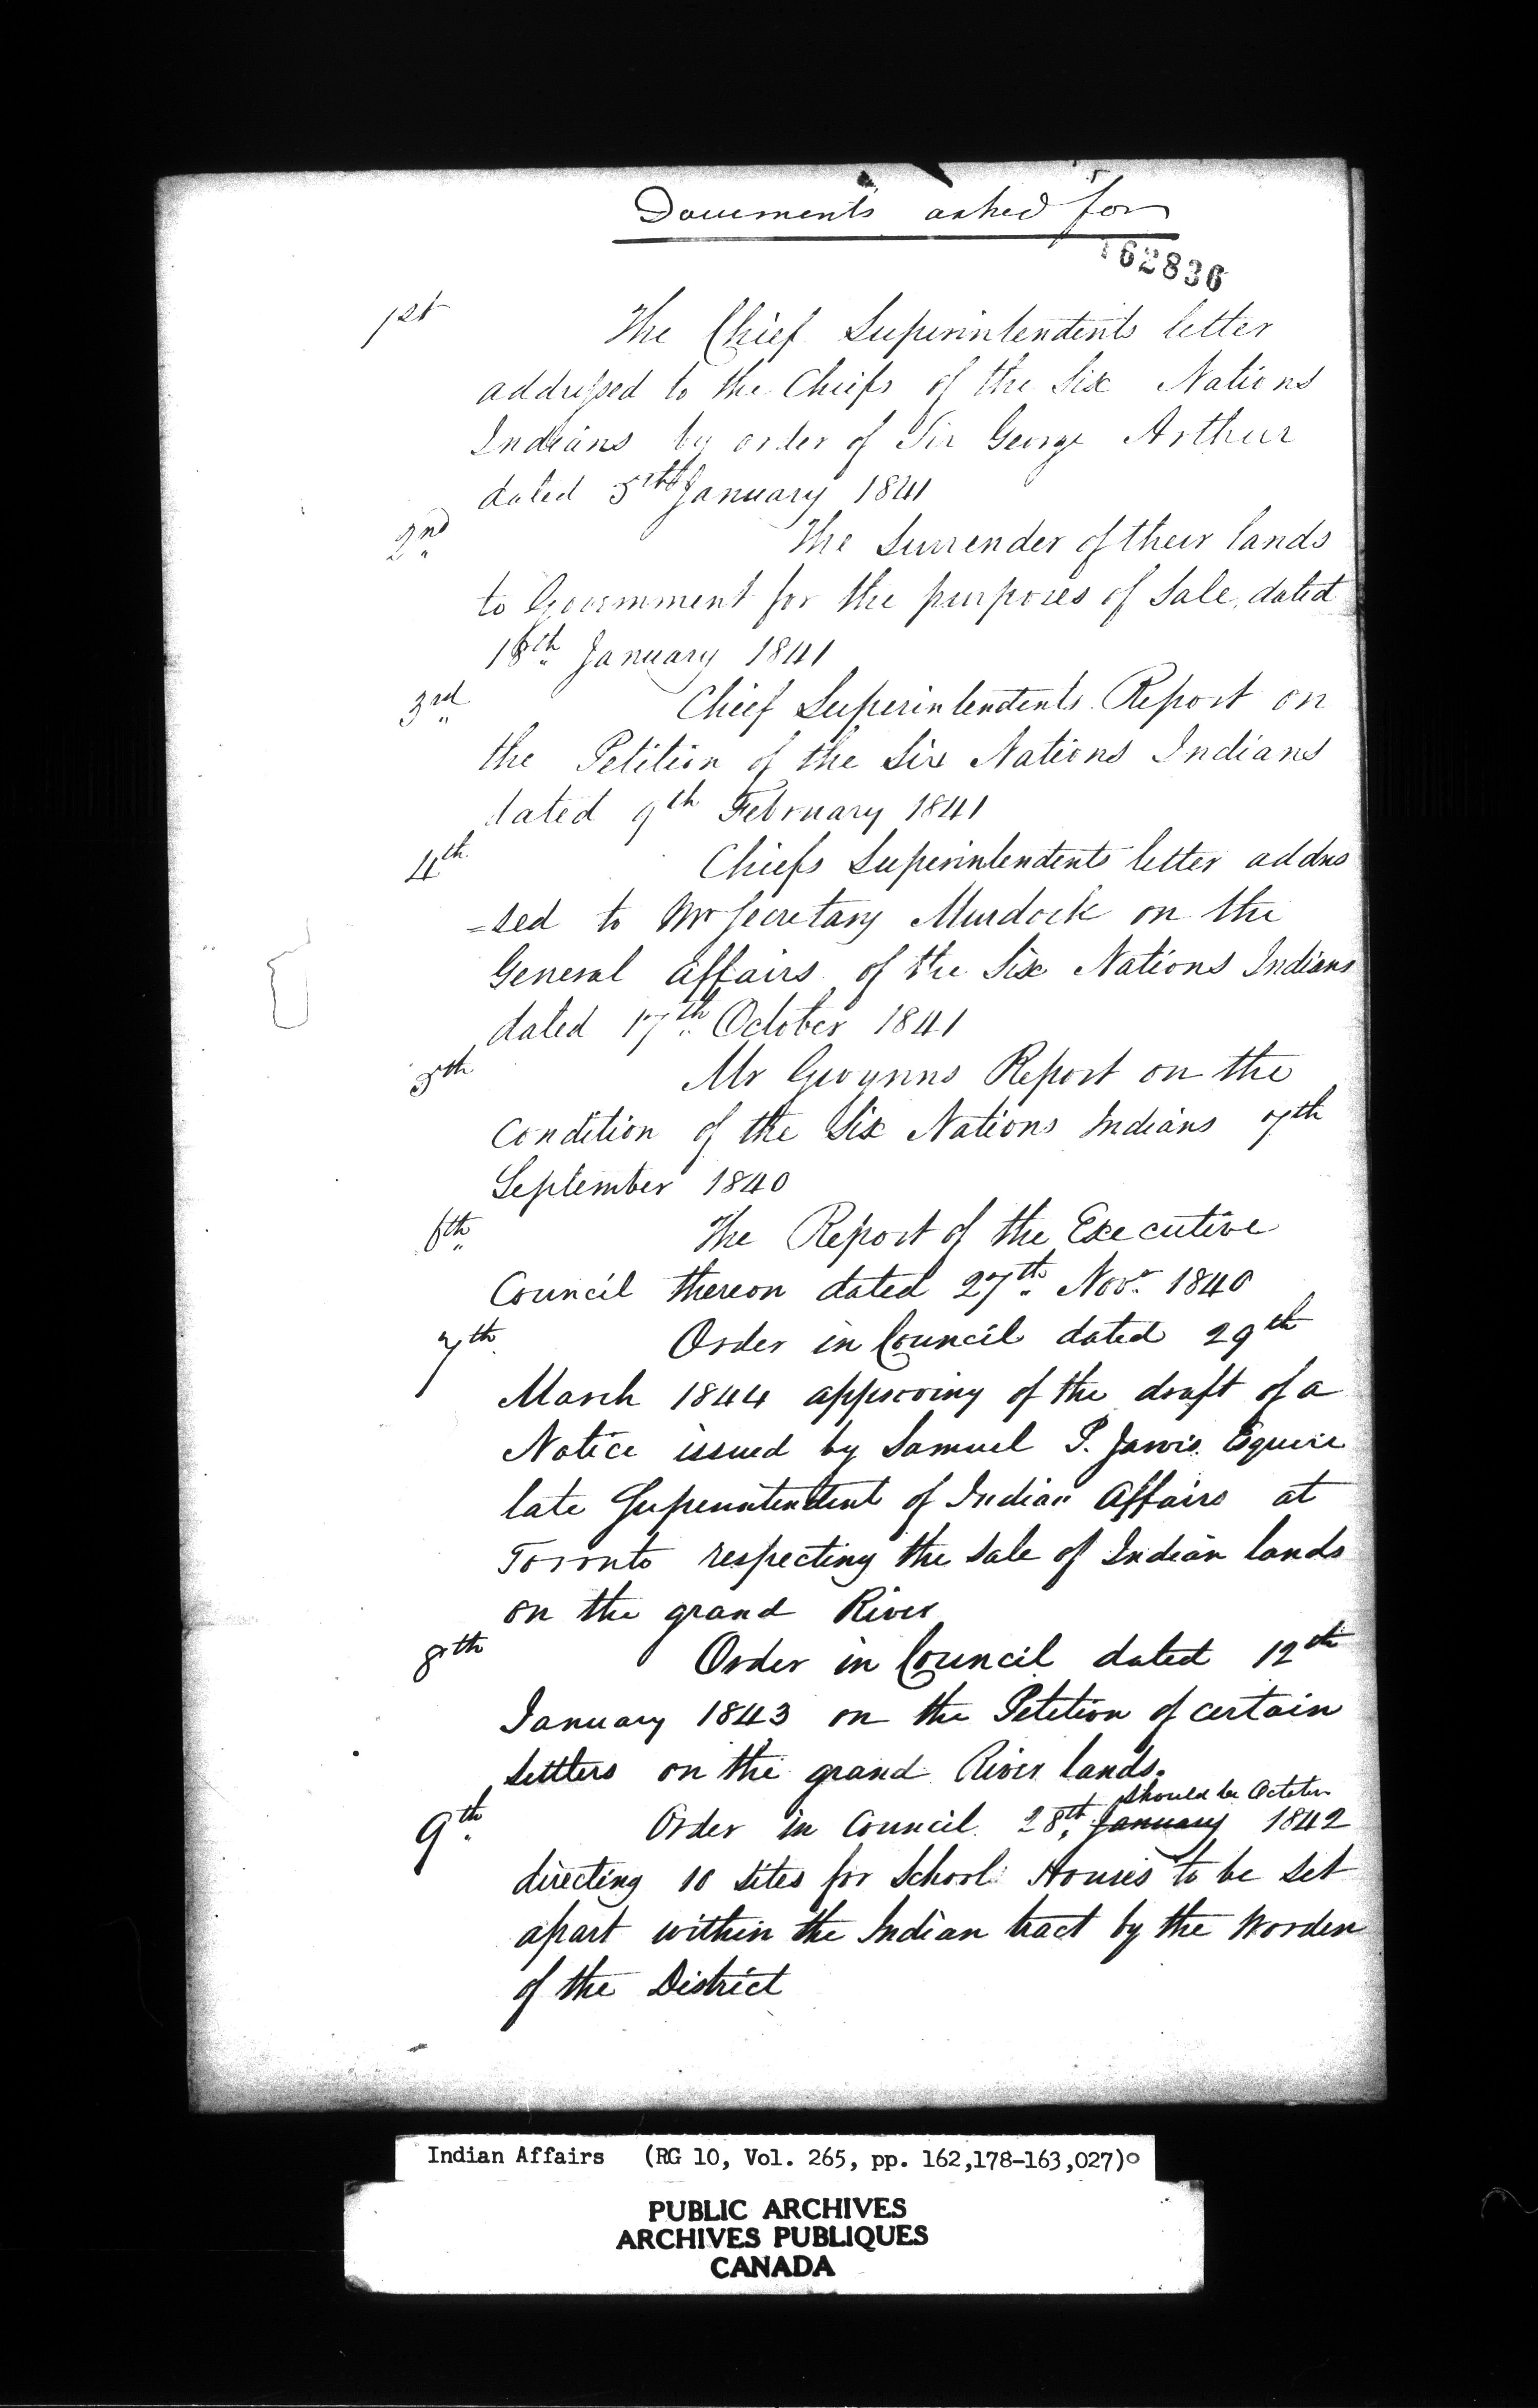 Documents asked for
162836
1st The Chief Superintendents letter
addressed to the Chiefs of the Six Nations
Indians by order of Sir George Arthur
dated 5th January 1841
2nd The Surrender of their lands
to Government for the purposes of Sale, dated
18th January 1841
3rd Chief Superintendents Report on
the Petition of the Six Nations Indians
dated 9th February 1841
4th Chiefs Superintendents letter addres
=sed to Mr Secretary Murdock on the
General affairs of the Six Nations Indians
dated 17th October 1841
5th Mr Gwynns Report on the
Condition of the Six Nations Indians 7th
September 1840
6th The Report of the Executive
Council thereon dated 27th Novr 1840
7th Order in Council dated 29th
March 1844 approving of the draft of a
Notice issued by Samuel P. Jarvis Esquire
late Superintendent of Indian Affairs at
Toronto respecting the Sale of Indian lands
on the grand River
8th Order in Council dated 12th
January 1843 on the Petition of certain
Settlers on the grand River lands.
should be October
9th Order in Council 28th January 1842
directing 10 sites for School Houses to be set
apart within the Indian tract by the Worden
of the District
Indian Affairs (RG 10, Vol. 265, pp. 162,178-163,027)
PUBLIC ARCHIVES
ARCHIVES PUBLIQUES
CANADA